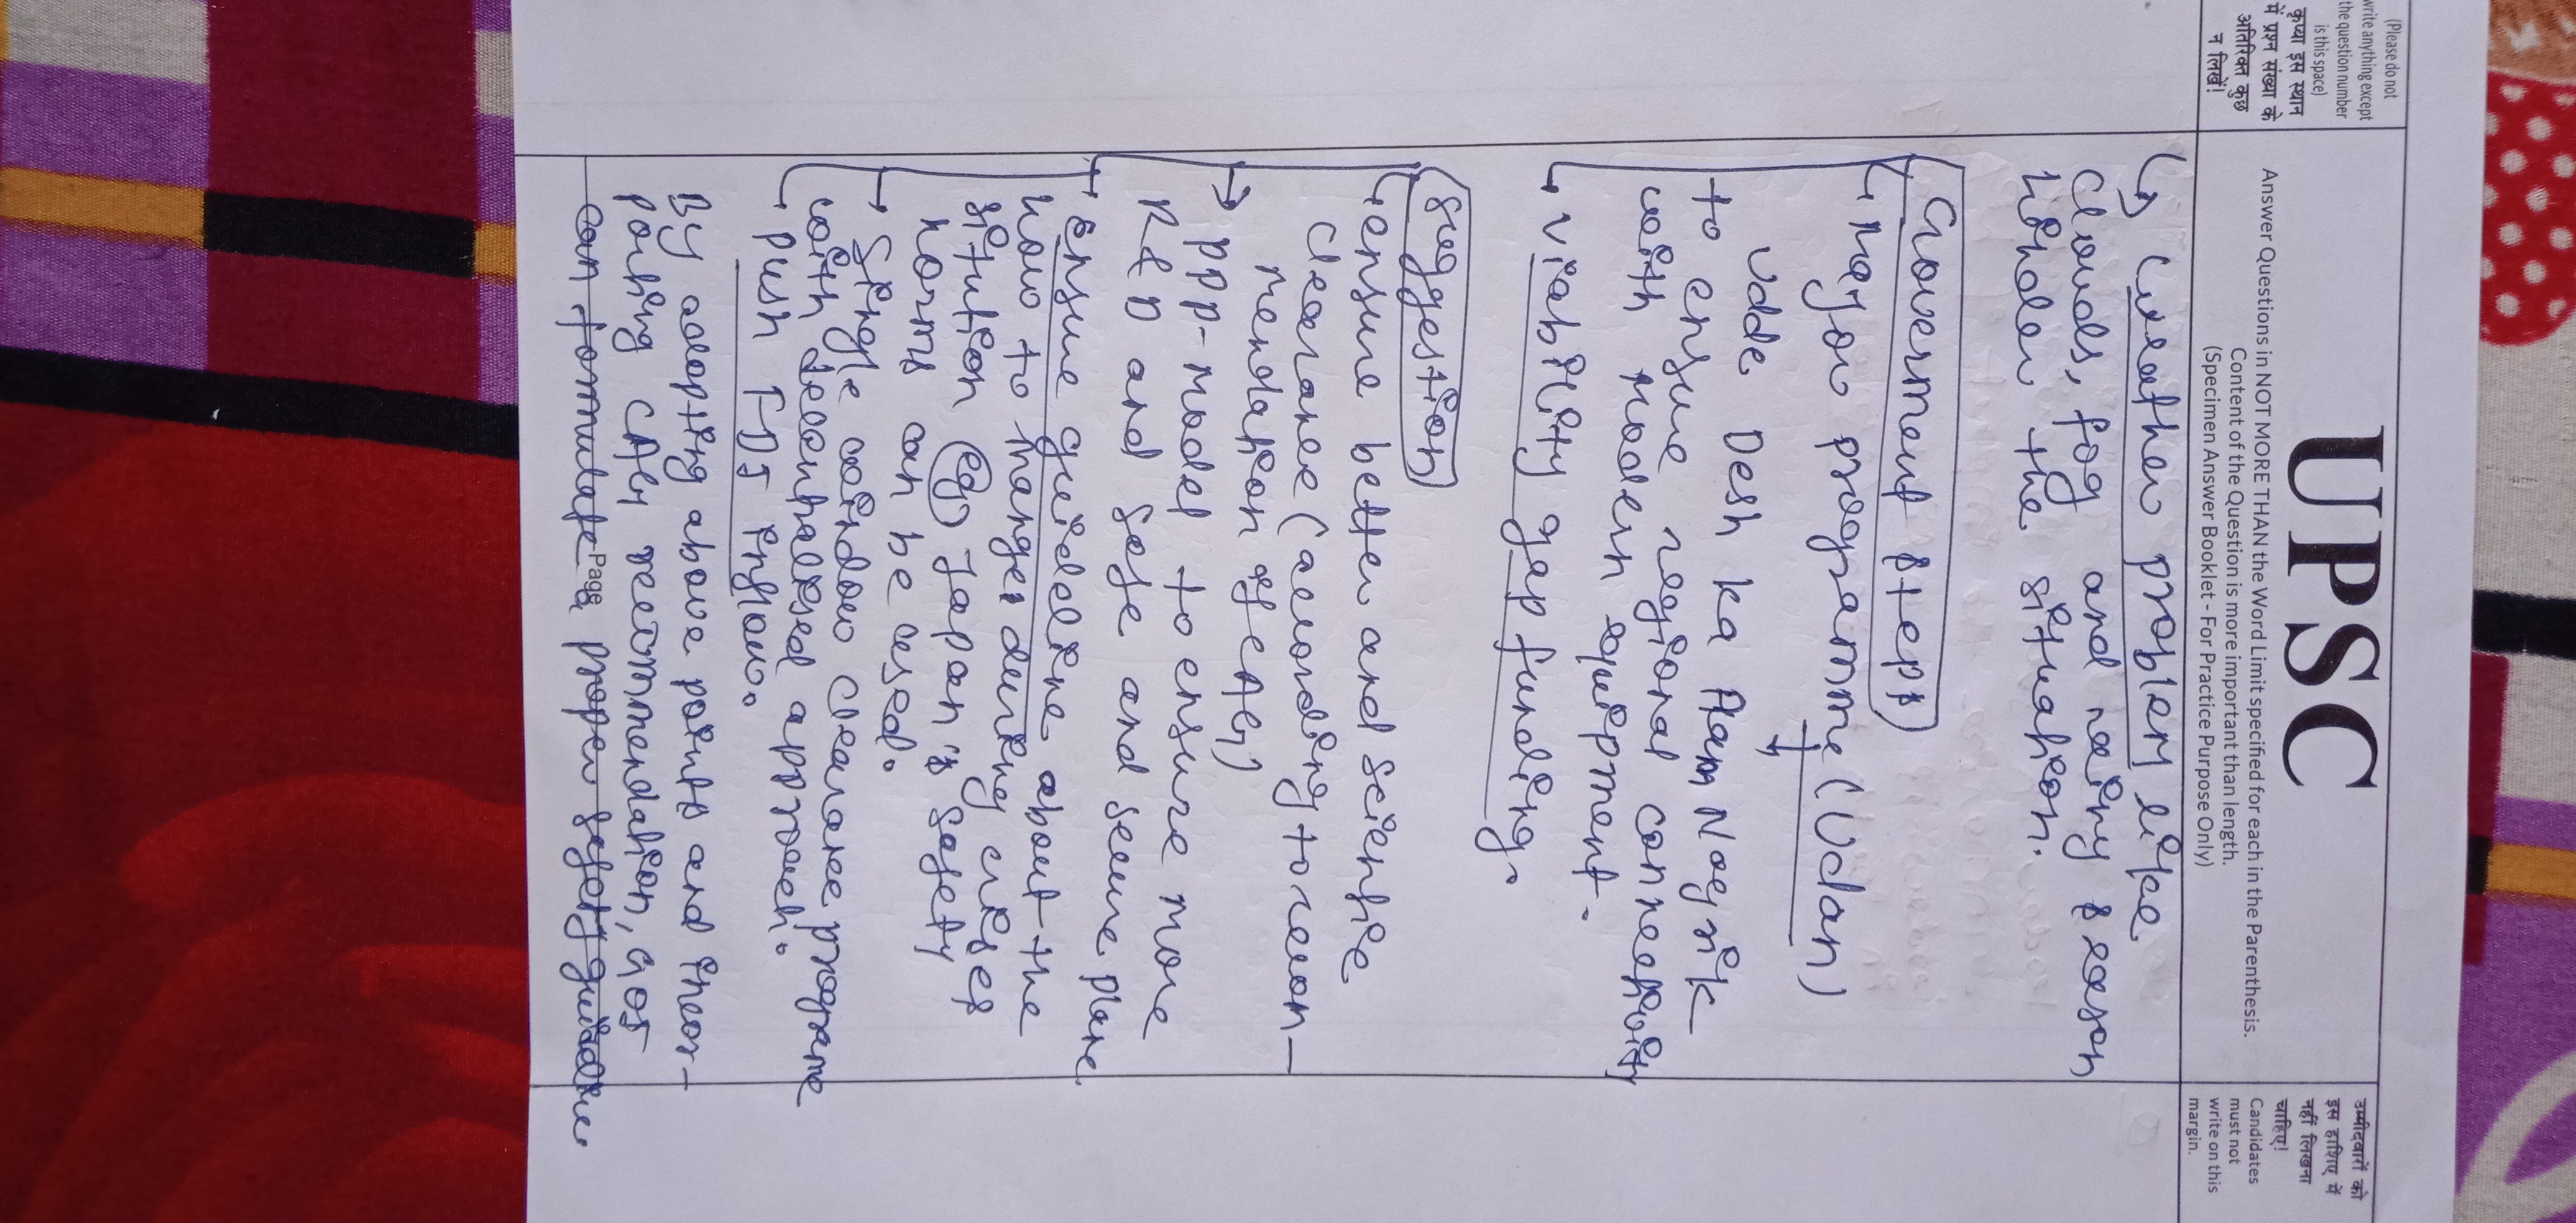 (Please do not
write anything except
the question number
is this space)
कृप्या इस स्थान
में प्रश्न संख्या के
अतिरिक्त कुछ
न लिखें!
UPSC
Answer Questions in NOT MORE THAN the Word Limit specified for each in the Parenthesis.
Content of the Question is more important than length.
(Specimen Answer Booklet - For Practice Purpose Only)
उम्मीदवारों को
इस हाशिए में
नहीं लिखना
चाहिए!
Candidates
must not
write on this
margin.
↳ Weather problem like
clouds, fog and rainy season
hinder the situation.
Goverment steps
→ major programme (Udan)
Udde Desh ka Aam Nagrik
to ensure regional connectivity
with modern equipment.
→ viability gap funding.
suggestion
→ ensure better and scientific
clearance (according to recom-
mendation of CAG)
→ PPP-model to ensure more
R&D and safe and secure plane
→ ensure guideline about the
how to manage during crises
sitution eg Japan's safety
norms can be used.
→ single window clearance programe
with decentralised approach.
→ push FDI inflow.
By adopting above points and incor-
porting CAG recommendation, GOI
can formulate proper safety guideline
Page